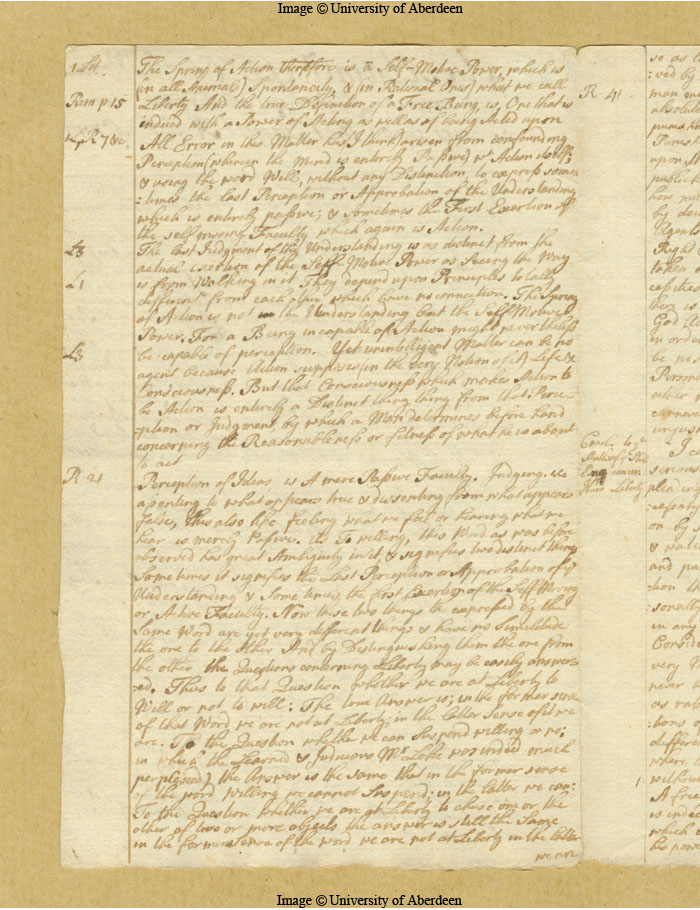 Image © University of Aberdeen
1 Let.
The Spring of Action therefore is a Self-Motive Power, which is
(in all Animals) Spontaneity, & (in Rational Ones) what we call
Rem p 15
Liberty And the true Definition of a Free Being is, One that is
indued with a Power of Acting as well as of being Acted upon
R 7 &c
All Error in this Matter has I think arisen from confounding
Perception (wherein the Mind is entirely Passive) wt Action itself;
& using the word Will, without any Distinction, to express some
:times the last Perception or Approbation of the Understanding
which is entirely passive; & sometimes the First Exertion of
the self moving Faculty which again is Action.
L3
The last Judgment of the Understanding is as distinct from the
actual Exertion of the Self Motive Power as Seeing the Way
L1
is from Walking in it. They depend upon Principles totally
different from each other which have no connection. The Spring
of Action is not in the Understanding but the Self Motive
Power. For a Being incapable of Action might nevertheless
L3
be capable of perception. Yet unintelligent Matter can be no
agent because Action supposes (in the very Notion of it) Life &
Consciousness. But that Consciousness which makes Action to
be Action is entirely a Distinct thing thing from that Perce
:ption or Judgment by which a Man determines before hand
concerning the Reasonableness or fitness of what he is about
to act
R 21
Perception of Ideas is A mere Passive Faculty. Judging is
assenting to what appears true & dissenting from what appears
false, this also like feeling what we feel or hearing what we
hear is merely Passive. As To willing, this Word as was before
observed has great Ambiguity in it, & signifies two distinct things
Sometimes it signifies the Last Perception or Approbation of ye
Understanding & Some times the first Exertion of the Self Moving
or Active Faculty. Now these two things tho expressed by the
Same Word are yet very different things & have no Similitude
the one to the Other And by Distinguishing them the one from
the other the Questions concerning Liberty may be easily answer
:ed. Thus to that Question whether we are at Liberty to
Will or not to will: The true Answer is; in the former sense
of that Word we are not at Liberty: in the latter Sense of it we
are. To the Question whether we can Suspend willing or no;
in which the Learned & Judicious Mr Locke was indeed much
perplexed) the Answer is the same that in the former sense
of the word willing we cannot Suspend; in the latter we can:
To the Question whether we are at Liberty to chuse one or the
other of two or more objects the answer is still the Same
in the former sense of the word we are not at Liberty in the latter
we are
R 41
Liberty
Image © University of Aberdeen